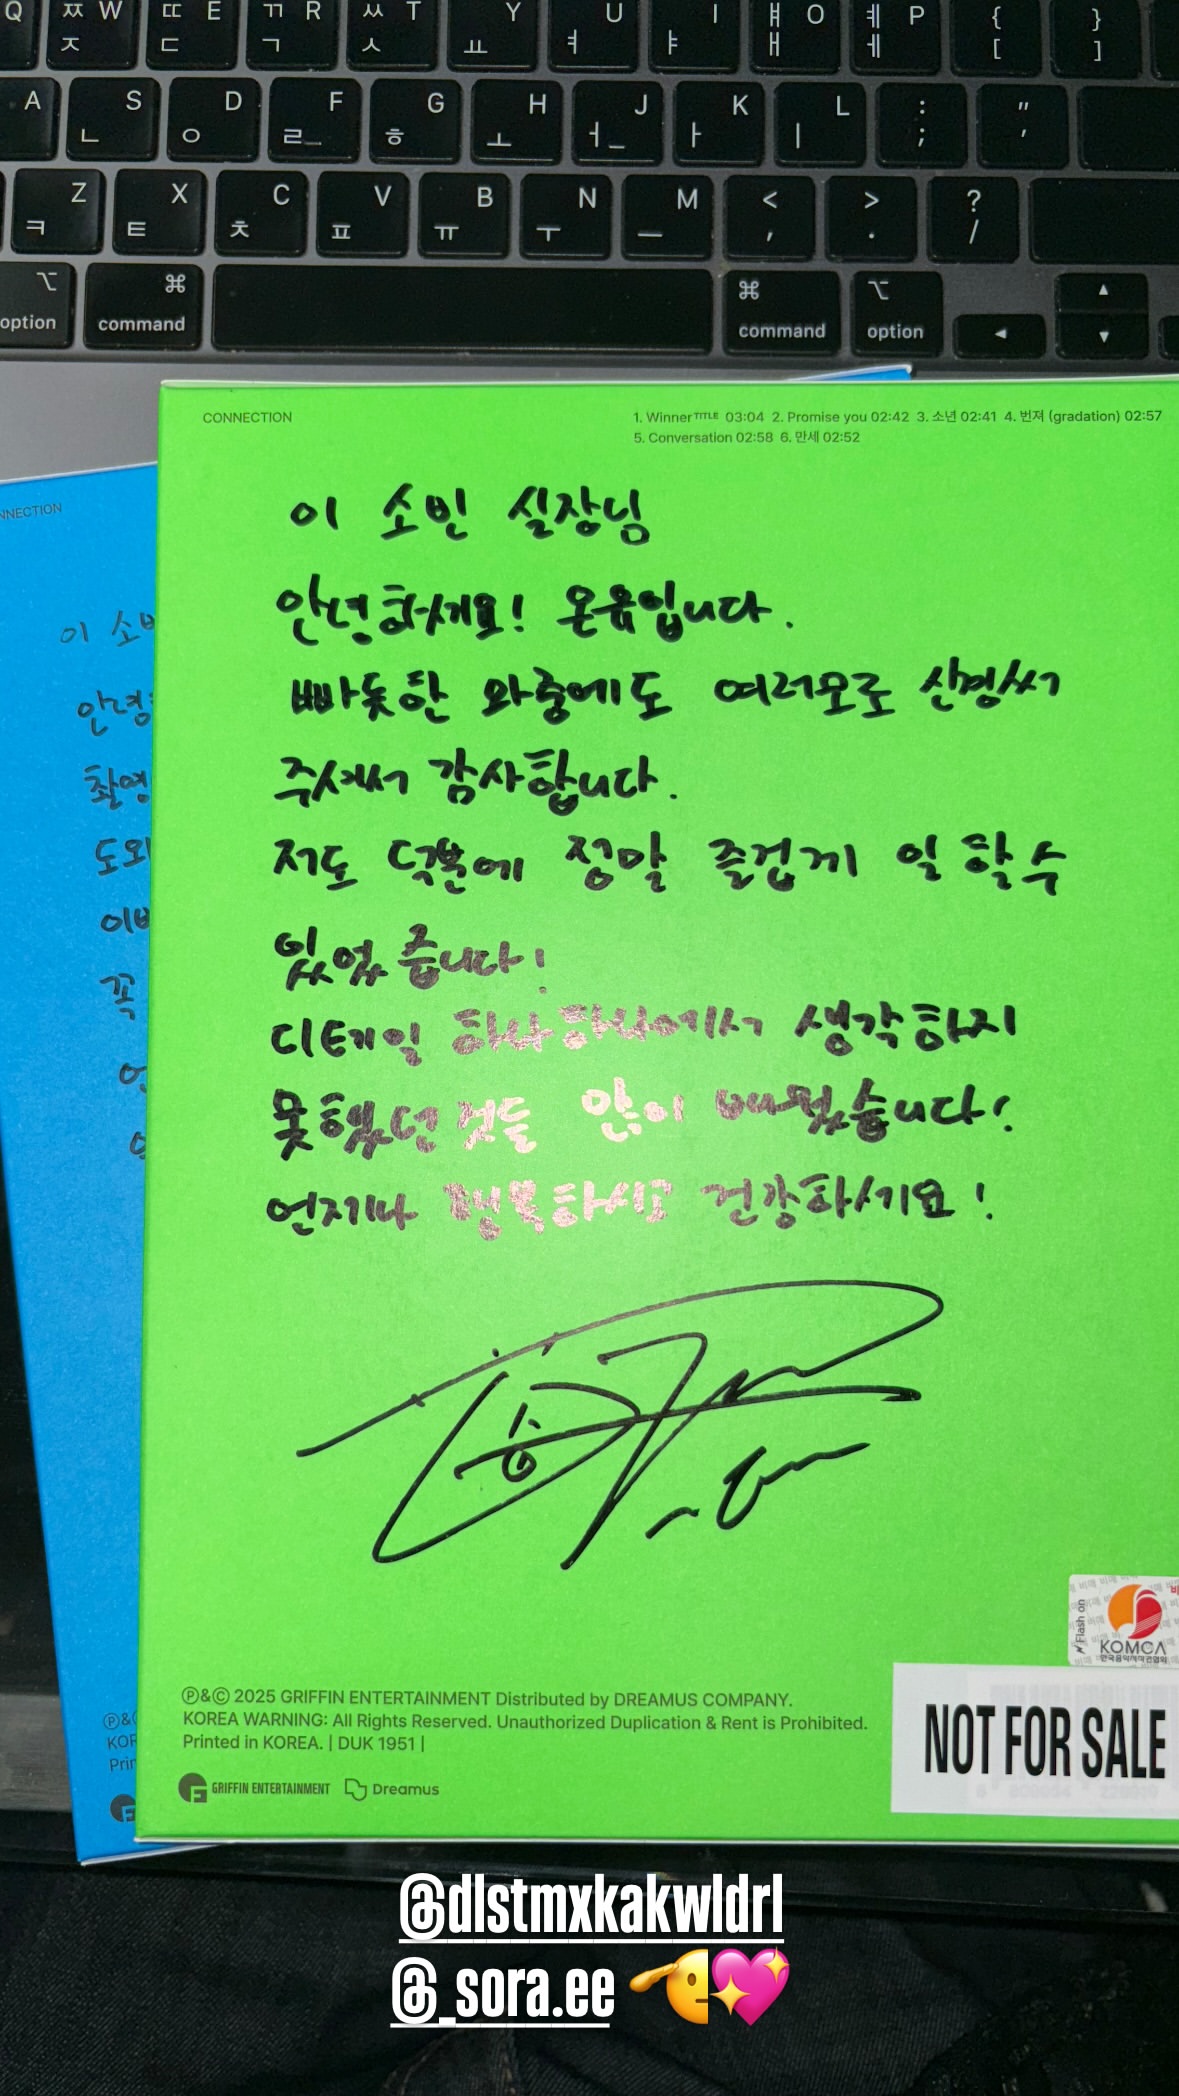 Q ㅉ W ㄸ E ㄲ R ㅆ T Y U I ㅒ O ㅖ P { }
ㅈ ㄷ ㄱ ㅅ ㅛ ㅕ ㅑ ㅐ ㅔ [ ]
A S D F G H J K L : "
ㄴ ㅇ ㄹ ㅎ ㅗ ㅓ ㅏ ㅣ ; '
Z X C V B N M < > ?
ㅋ ㅌ ㅊ ㅍ ㅠ ㅜ ㅡ , . /
⌥ ⌘ ⌘ ⌥ ▲
option command command option ◀ ▼
CONNECTION
1. Winner TITLE 03:04 2. Promise you 02:42 3. 소년 02:41 4. 번져 (gradation) 02:57
5. Conversation 02:58 6. 만세 02:52
이 소빈 실장님
안녕하세요! 온유입니다.
빠듯한 와중에도 여러모로 신경써
주셔서 감사합니다.
저도 덕분에 정말 즐겁게 일 할 수
있었습니다!
디테일 하나하나에서 생각하지
못했던 것들 많이 배웠습니다!
언제나 행복하시고 건강하세요!
NNECTION
이 소
안녕
촬영
도와
이
꼭
언
Flash on
KOMCA
한국음악저작권협회
NOT FOR SALE
Ⓟ&Ⓒ 2025 GRIFFIN ENTERTAINMENT Distributed by DREAMUS COMPANY.
KOREA WARNING: All Rights Reserved. Unauthorized Duplication & Rent is Prohibited.
Printed in KOREA. | DUK 1951 |
GRIFFIN ENTERTAINMENT Dreamus
Ⓟ&
KOR
Prin
@dlstmxkakwldrl
@_sora.ee 🫡💖